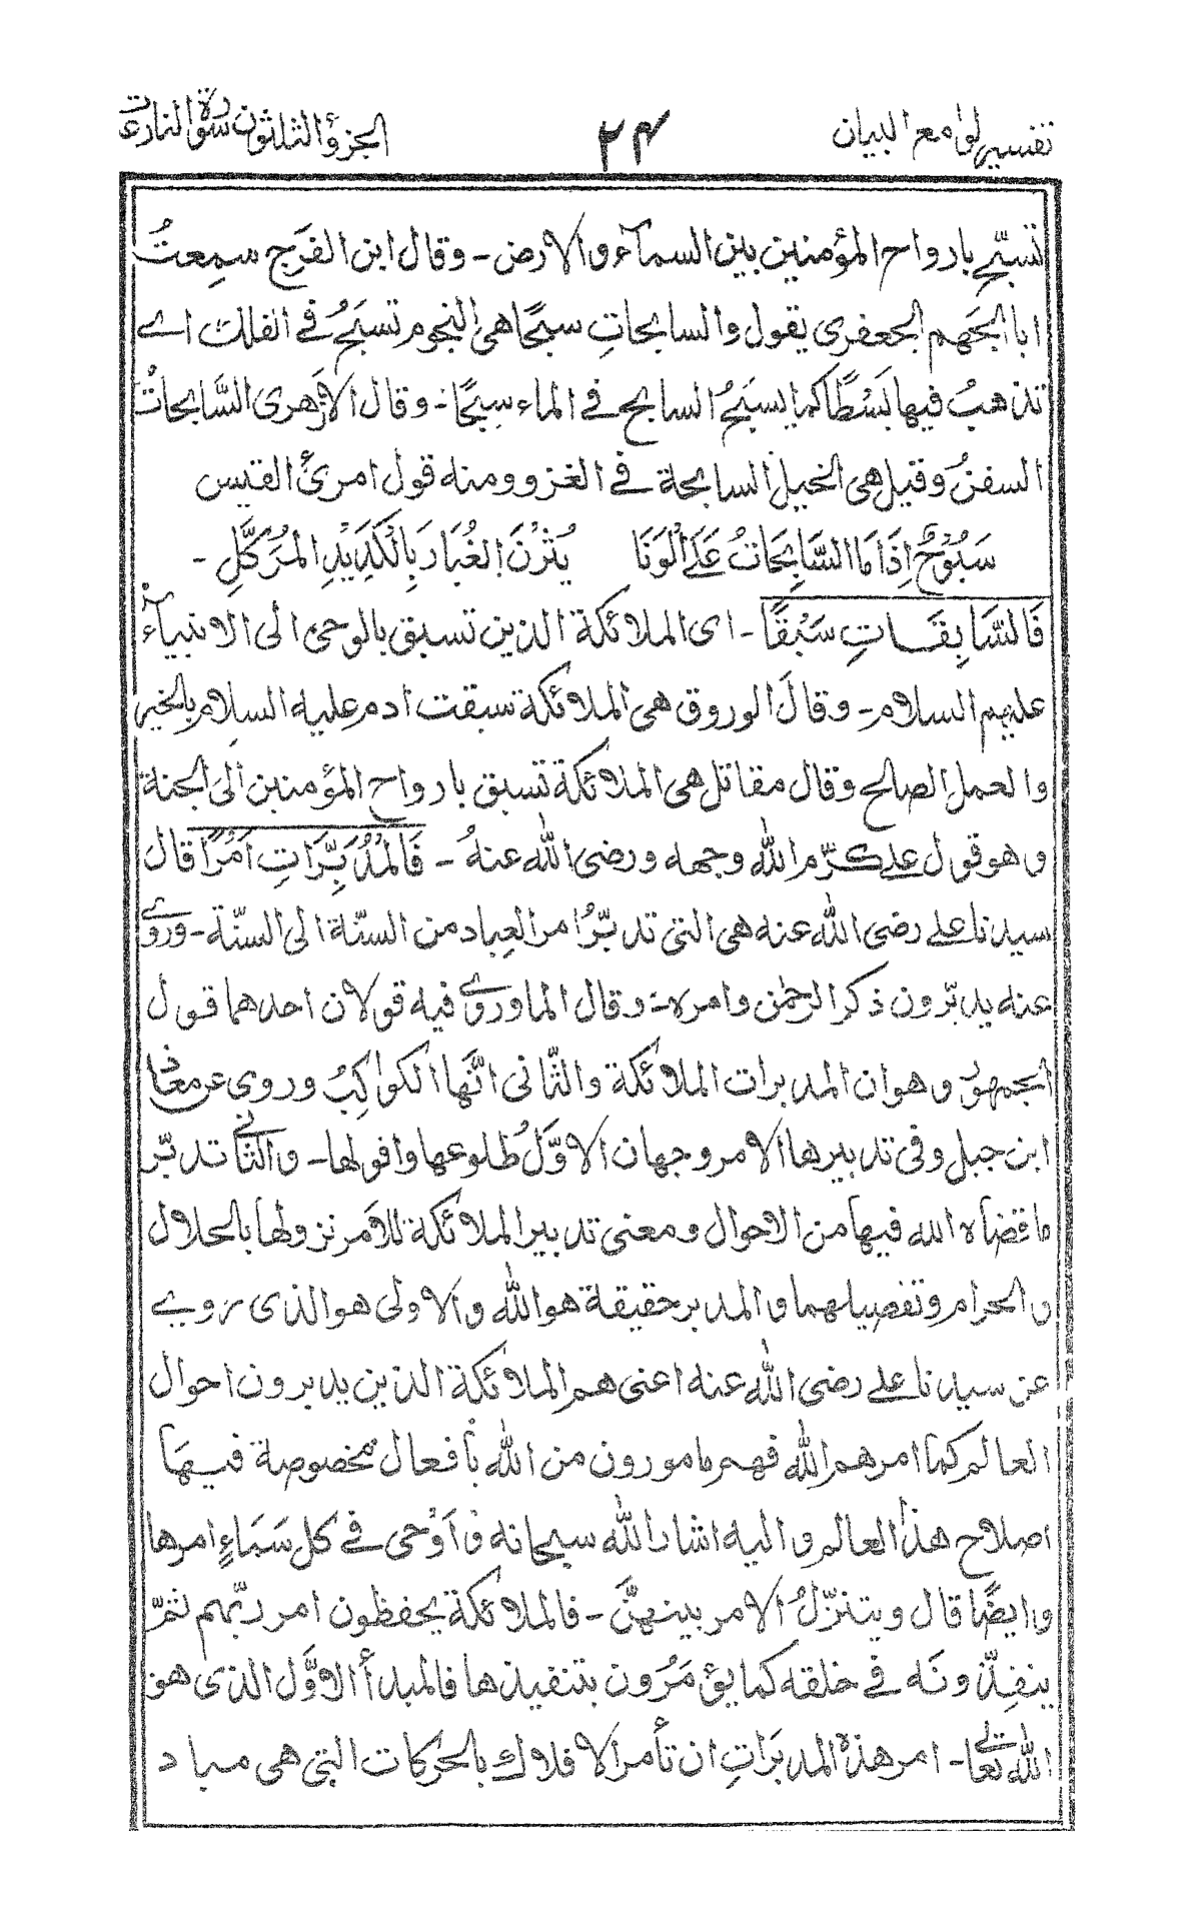 تفسير لوامع البيان ٢٤ الجزؤ الثلثون سورة النازعات
تسبّح بارواح المؤمنين بين السمآء والارض - وقال ابن الفرج سمعتُ
ابا الجهم الجعفرى يقول والسابحاتِ سبحًا هى النجوم تسبحُ فے الفلك اے
تذهبُ فيها بَسْطًا كما يسبَحُ السابح فے الماء سبحًا - وقال الازهرى السَّابحاتْ
السفنُ وقيل هى الخيل السابحة فے الغزو ومنه قول امرئ القيس
سَبُوْحٌ اِذَا ما السَّابِحَاتُ عَلَے الْوَنَا يُثِرْنَ الغُبَارَ بِالْكَدِيْدِ المُرَكَّلِ -
فَالسَّابِقَاتِ سَبْقًا - اى الملائكة الذين تسبق بالوحى الى الانبيآء
عليهم السلام - وقالَ الوروق هى الملائكة سبقت ادم عليه السلام بالخير
والعمل الصالح وقال مقاتل هى الملائكة تسبق بارواح المؤمنين الى الجنة
وهو قول علے كرّم الله وجهه ورضى الله عنهُ - فَالمُدَبِّرَاتِ اَمْرًا قال
سيدنا علے رضى الله عنه هى التى تدبّرُ امر العباد من السنّة الى السنّة - وروے
عنه يدبّرون ذكر الرحمٰن وامره - وقال الماوردے فيه قولان احدهما قول
الجمهور وهو ان المدبرات الملائكة والثّانى انّها الكواكبُ وروى عن معاذ
ابن جبل وفى تدبيرها الامر وجهان الاوّلُ طلوعها وافولها - والثانى تدبّر
ما قضاه الله فيها من الاحوال ومعنى تدبير الملائكة للامر نزولها بالحلال
والحرام وتفصيلهما والمدبر حقيقة هو الله والاولى هو الذى روے
عن سيدنا علے رضى الله عنه اعنى هم الملائكة الذين يدبرون احوال
العالم كما امرهم الله فهم مامورون من الله بأفعال مخصوصة فيها
اصلاح هذا العالم واليه اشار الله سبحانه وَاَوْحى فے كل سَمَاءٍ امرها
وايضًا قال ويتنزّلُ الامر بينهنّ - فالملائكة يحفظون امر ربّهم ثمّ
ينفذّونَه فے خلقه كما يؤمَرُون بتنفيذها فالمبدأ الاوّل الذى هو
الله تعالے - امر هذه المدبّراتِ ان تأمر الافلاك بالحركات التى هى مباد